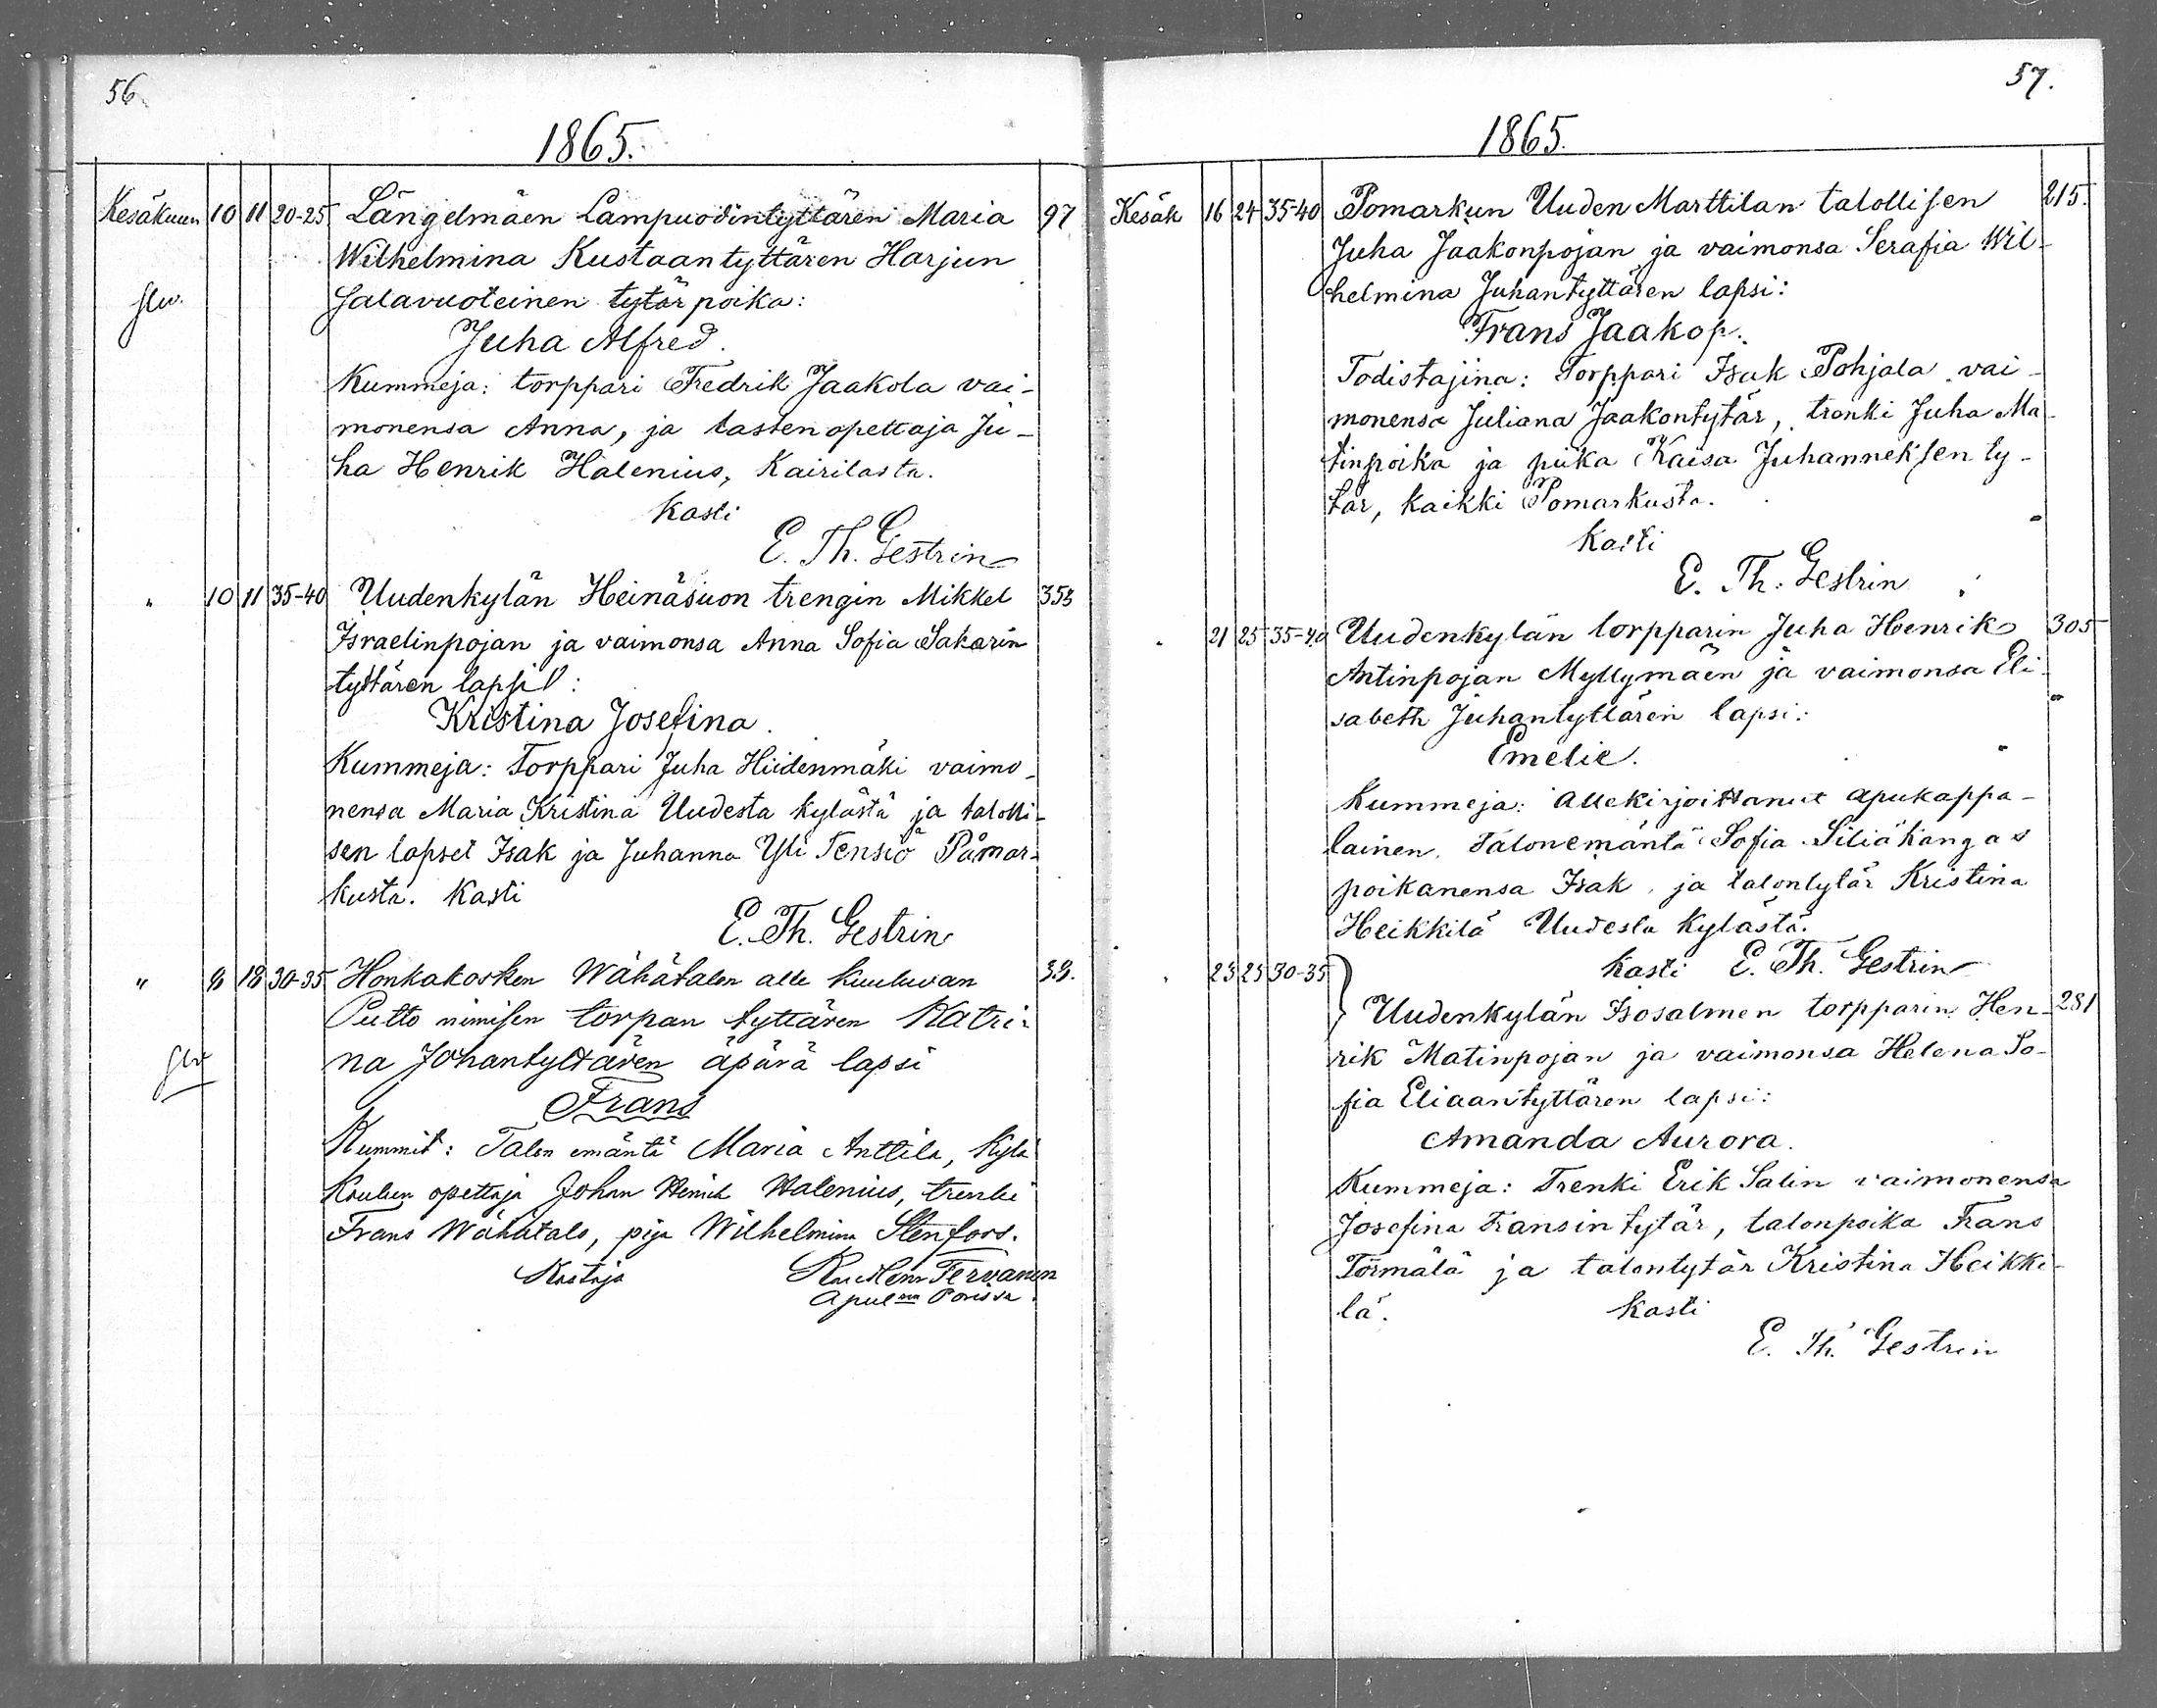 56
1865.
Kesäkuun 10 11 20-25 Längelmäen Lampuodintyttären Maria 97
Wilhelmina Kustaantyttären Harjun
salavuoteinen tytär poika:
Juha Alfred.
Kummeja: torppari Fredrik Jaakola vai-
monensa Anna, ja lasten opettaja Ju-
ha Henrik Halenius, Kairilasta.
Kasti
E. Th. Gestrin
" 10 11 35-40 Uudenkylän Heinäsuon trengin Mikkel 353
Israelinpojan ja vaimonsa Anna Sofia Sakarin
tyttären lapsi:
Kristina Josefina.
Kummeja: Torppari Juha Hiidenmäki vaimo-
nensa Maria Kristina Uudesta kylästä ja talolli-
sen lapset Isak ja Juhanna Yli Tensiö Pomar-
kusta. Kasti
E. Th. Gestrin
" 8 18 30-35 Honkakosken Wähätalon alle kuuluvan 39.
Putto nimisen torpan tyttären Katri-
na Johantyttären äpärä lapsi
Frans
Kummit: Talon emäntä Maria Anttila, Kylä
Koulun opettaja Johan Henrik Halenius, trenki
Frans Wähätalo, pija Wilhelmina Stenfors.
Kastaja Tervanen
Porissa.
57.
1865.
Kesäk 16 24 35-40 Pomarkun Uuden Marttilan talollisen 215.
Juha Jaakonpojan ja vaimonsa Serafia Wil-
helmina Juhantyttären lapsi:
Frans Jaakop.
Todistajina: Torppari Isak Pohjala vai-
monensa Juliana Jaakontytär, trenki Juha Ma-
tinpoika ja piika Kaisa Juhanneksen ty-
tär, kaikki Pomarkusta.
Kasti
E. Th. Gestrin
" 21 25 35-40 Uudenkylän torpparin Juha Henrik 305
Antinpojan Myllymäen ja vaimonsa Eli-
sabeth Juhantyttären lapsi:
Emelie.
Kummeja: Allekirjoittanut apukappa-
lainen, talonemäntä Sofia Siliäkangas
poikanensa Isak, ja talontytär Kristina
Heikkilä Uudesta kylästä.
Kasti E. Th. Gestrin
" 23 25 30-35 Uudenkylän Isosalmen torpparin Hen- 281
rik Matinpojan ja vaimonsa Helena So-
fia Eliaantyttären lapsi:
Amanda Aurora.
Kummeja: Trenki Erik Salin vaimonensa
Josefina Fransintytär, talonpoika Frans
Törmälä ja talontytär Kristina Heikki-
lä. Kasti
E. Th. Gestrin